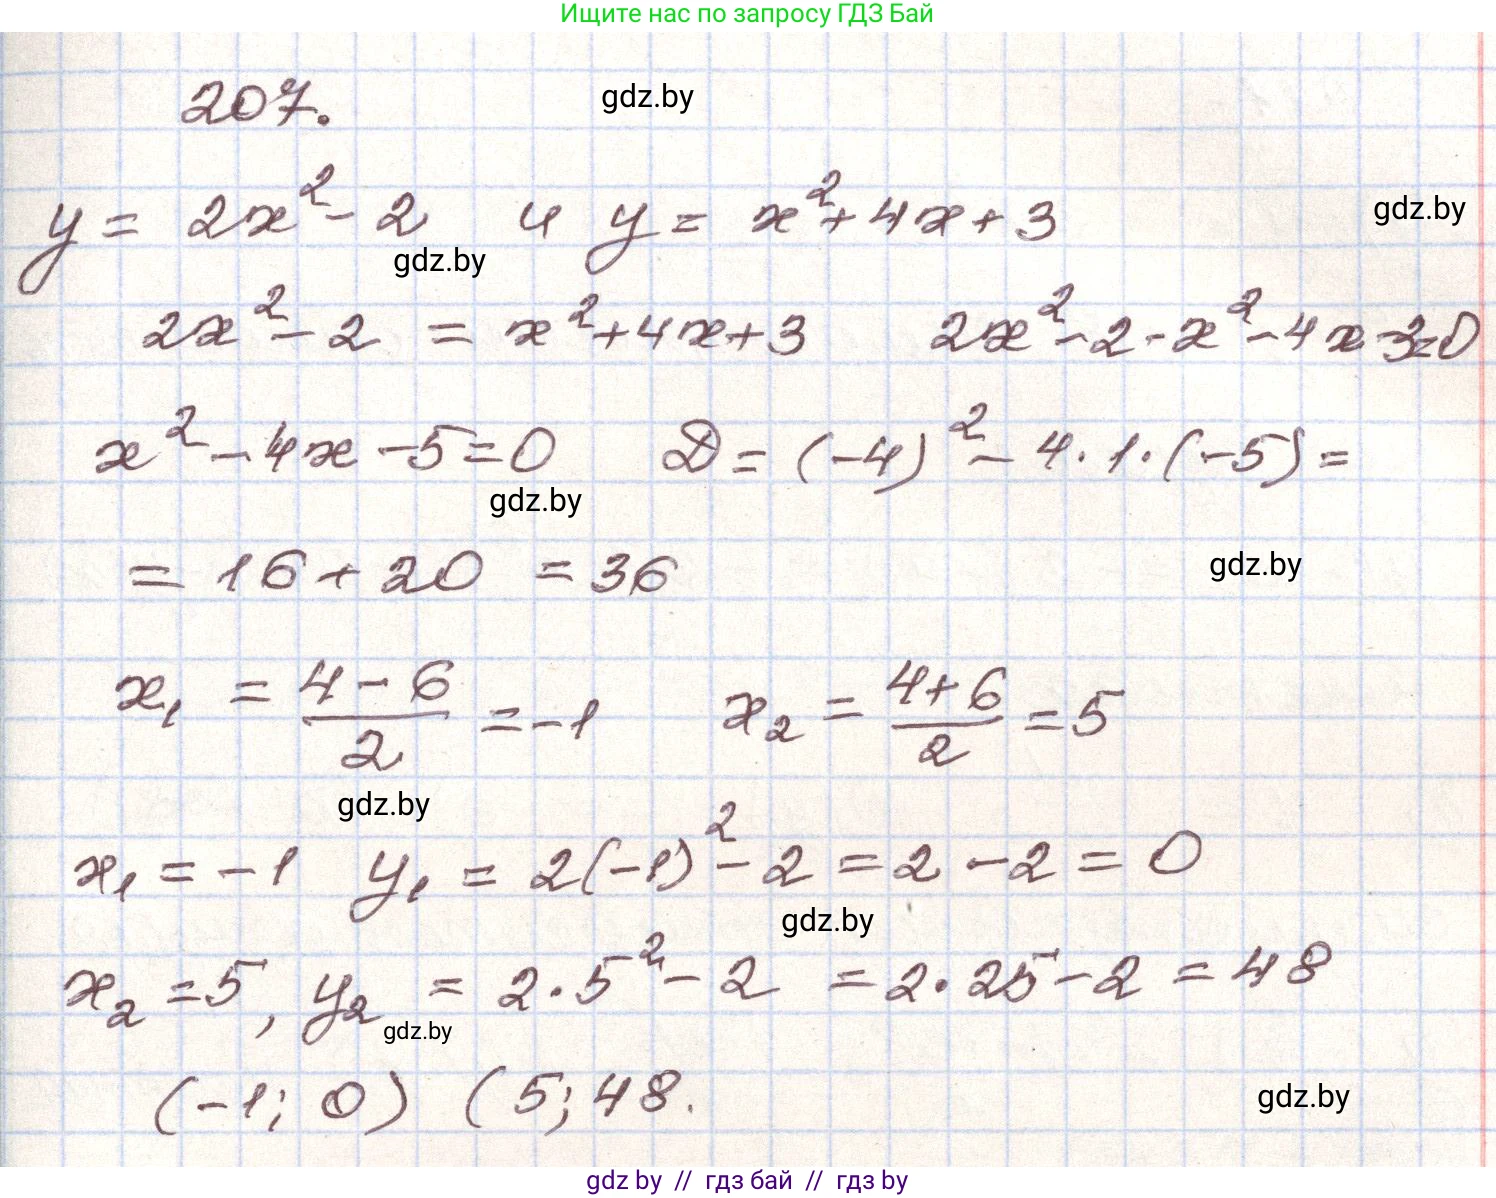 Ищите нас по запросу ГДЗ Бай
207.
gdz.by
y = 2x² - 2 и y = x² + 4x + 3
gdz.by
gdz.by
2x² - 2 = x² + 4x + 3 2x² - 2 - x² - 4x - 3 = 0
x² - 4x - 5 = 0 D = (-4)² - 4 · 1 · (-5) =
gdz.by
= 16 + 20 = 36
gdz.by
x₁ = (4 - 6)/2 = -1 x₂ = (4 + 6)/2 = 5
gdz.by
x₁ = -1 y₁ = 2(-1)² - 2 = 2 - 2 = 0
gdz.by
x₂ = 5, y₂ = 2 · 5² - 2 = 2 · 25 - 2 = 48
gdz.by
(-1; 0) (5; 48.
gdz.by
gdz by // гдз бай // гдз by